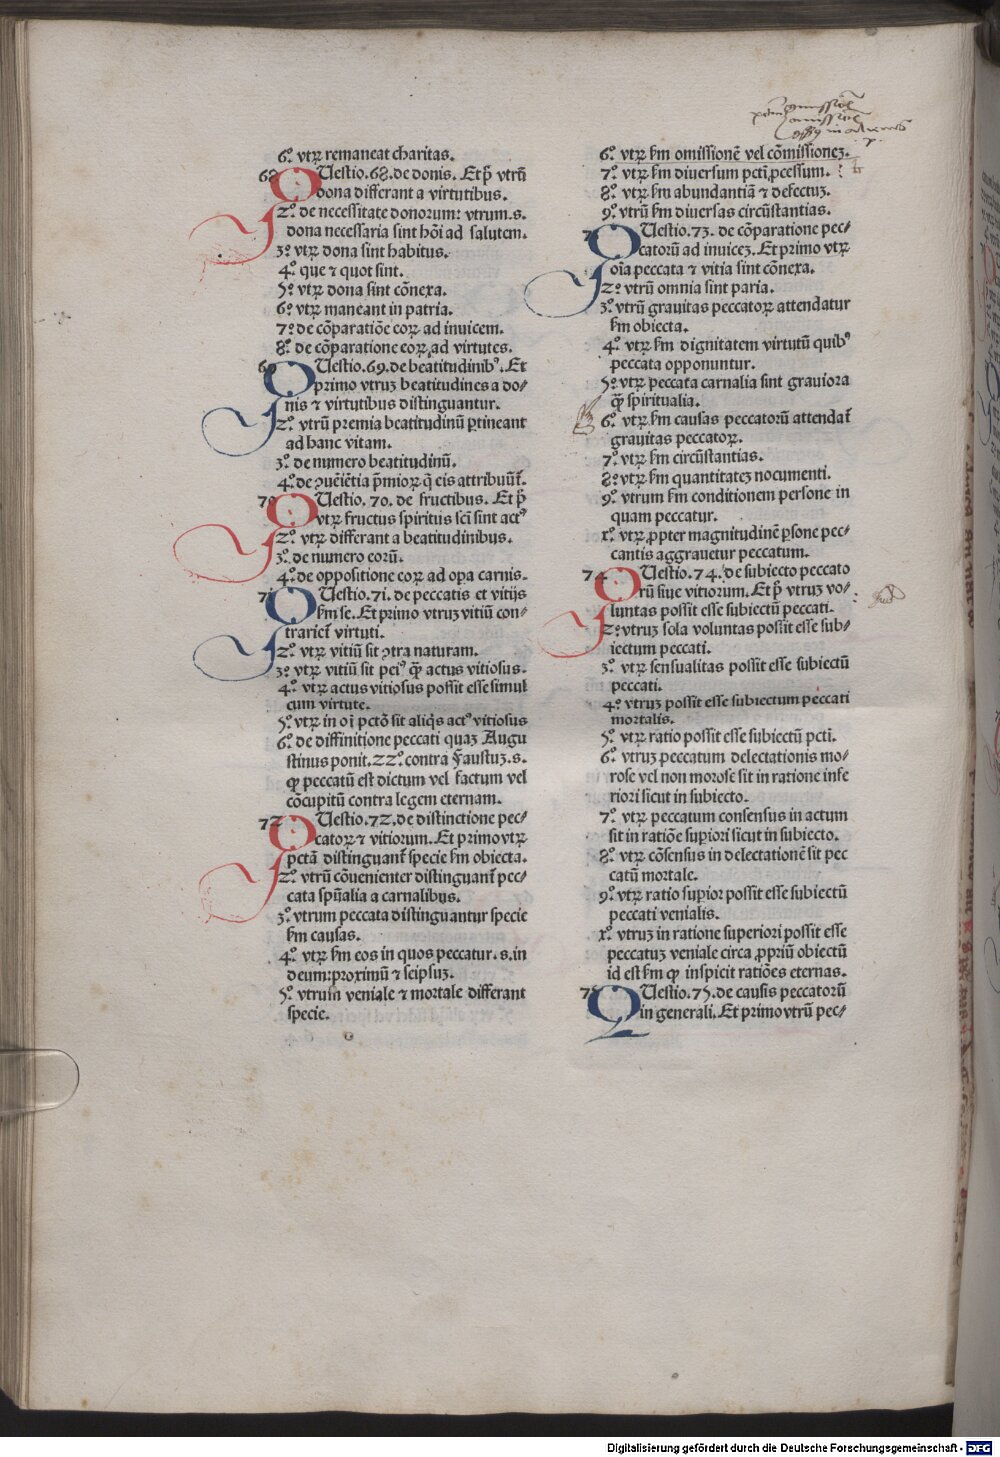 6.º vtrꝝ remaneat charitas.
68 QUestio.68.de donis. Et p̃ vtrũ
dona differant a virtutibus.
2.º de necessitate donorum: vtrum.s.
dona necessaria sint hõi ad salutem.
3.º vtrꝝ dona sint habitus.
4.º que ⁊ quot sint.
5.º vtrꝝ dona sint cõnexa.
6.º vtrꝝ maneant in patria.
7.º de cõparatiõe eoꝝ ad inuicem.
8.º de cõparatione eoꝝ ad virtutes.
69 QUestio.69.de beatitudinibꝰ. Et
primo vtruꝫ beatitudines a do⸗
nis ⁊ virtutibus distinguantur.
2.º vtrũ premia beatitudinũ ꝑtineant
ad hanc vitam.
3.º de numero beatitudinũ.
4.º de ꝯuẽiẽtia p̃mioꝝ q̃ eis attribuũt̃.
70 QUestio.70.de fructibus. Et p̃
vtrꝝ fructus spiritus sc̃i sint actꝰ
2.º vtrꝝ differant a beatitudinibus.
3.º de numero eorũ.
4.º de oppositione eoꝝ ad opa carnis.
71 QUestio.71.de peccatis et vitijs
ẜm se. Et primo vtruꝫ vitiũ con⸗
trariet̃ virtuti.
2.º vtrꝝ vitiũ sit ꝯtra naturam.
3.º vtrꝝ vitiũ sit peiꝰ q̃ꝫ actus vitiosus.
4.º vtrꝝ actus vitiosus possit esse simul
cum virtute.
5.º vtrꝝ in oĩ pctõ sit aliq̃s actꝰ vitiosus
6.º de diffinitione peccati quaꝫ Augu
stinus ponit.22.º contra Faustuꝫ.s.
ꝙ peccatũ est dictum vel factum vel
cõcupitũ contra legem eternam.
72 QUestio.72.de distinctione pec⸗
catoꝝ ⁊ vitiorum. Et primo vtrꝝ
pctã distinguant̃ specie ẜm obiecta.
2.º vtrũ cõuenienter distinguant̃ pec⸗
cata spũalia a carnalibus.
3.º vtrum peccata distinguantur specie
ẜm causas.
4.º vtrꝝ ẜm eos in quos peccatur.s.in
deum:proximũ ⁊ seipsuꝫ.
5.º vtrum veniale ⁊ mortale differant
specie.
6.º vtrꝝ ẜm omissionẽ vel cõmissioneꝫ.
7.º vtrꝝ ẜm diuersum pcti ꝓcessum.
8.º vtrꝝ ẜm abundantiã ⁊ defectuꝫ.
9.º vtrũ ẜm diuersas circũstantias.
QUestio.73. de cõparatione pec⸗
catorũ ad inuiceꝫ. Et primo vtrꝝ
oĩa peccata ⁊ vitia sint cõnexa.
2.º vtrũ omnia sint paria.
3.º vtrũ grauitas peccatoꝝ attendatur
ẜm obiecta.
4.º vtrꝝ ẜm dignitatem virtutũ quibꝰ
peccata opponuntur.
5.º vtrꝝ peccata carnalia sint grauiora
q̃ꝫ spiritualia.
6.º vtrꝝ ẜm causas peccatorũ attendat̃
grauitas peccatoꝝ.
7.º vtrꝝ ẜm circũstantias.
8.º vtrꝝ ẜm quantitateꝫ nocumenti.
9.º vtrum ẜm conditionem persone in
quam peccatur.
x.º vtrꝝ ꝓpter magnitudinẽ ꝑsone pec⸗
cantis aggrauetur peccatum.
74 QUestio.74.de subiecto peccato
rũ siue vitiorum. Et p̃ vtruꝫ vo⸗
luntas possit esse subiectũ peccati.
2.º vtruꝫ sola voluntas possit esse sub⸗
iectum peccati.
3.º vtrꝝ sensualitas possit esse subiectũ
peccati.
4.º vtruꝫ possit esse subiectum peccati
mortalis.
5.º vtrꝝ ratio possit esse subiectũ pcti.
6.º vtruꝫ peccatum delectationis mo⸗
rose vel non morose sit in ratione infe
riori sicut in subiecto.
7.º vtrꝝ peccatum consensus in actum
sit in ratiõe supiori sicut in subiecto.
8.º vtrꝝ cõsensus in delectationẽ sit pec
catũ mortale.
9.º vtrꝝ ratio supior possit esse subiectũ
peccati venialis.
x.º vtruꝫ in ratione superiori possit esse
peccatuꝫ veniale circa ꝓpriũ obiectũ
id est ẜm ꝙ inspicit ratiões eternas.
75 QUestio.75.de causis peccatorũ
in generali. Et primo vtrũ pec⸗
Digitalisierung gefördert durch die Deutsche Forschungsgemeinschaft - DFG